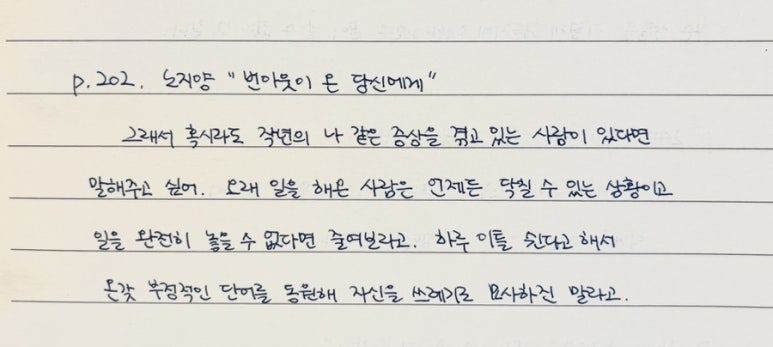 p.202. 노지양 "번아웃이 온 당신에게"
그래서 혹시라도 작년의 나 같은 증상을 겪고 있는 사람이 있다면
말해주고 싶어. 오래 일을 해온 사람은 언제든 닥칠 수 있는 상황이고
일을 완전히 놓을 수 없다면 줄여보라고. 하루 이틀 쉰다고 해서
온갖 부정적인 단어를 동원해 자신을 쓰레기로 묘사하진 말라고.